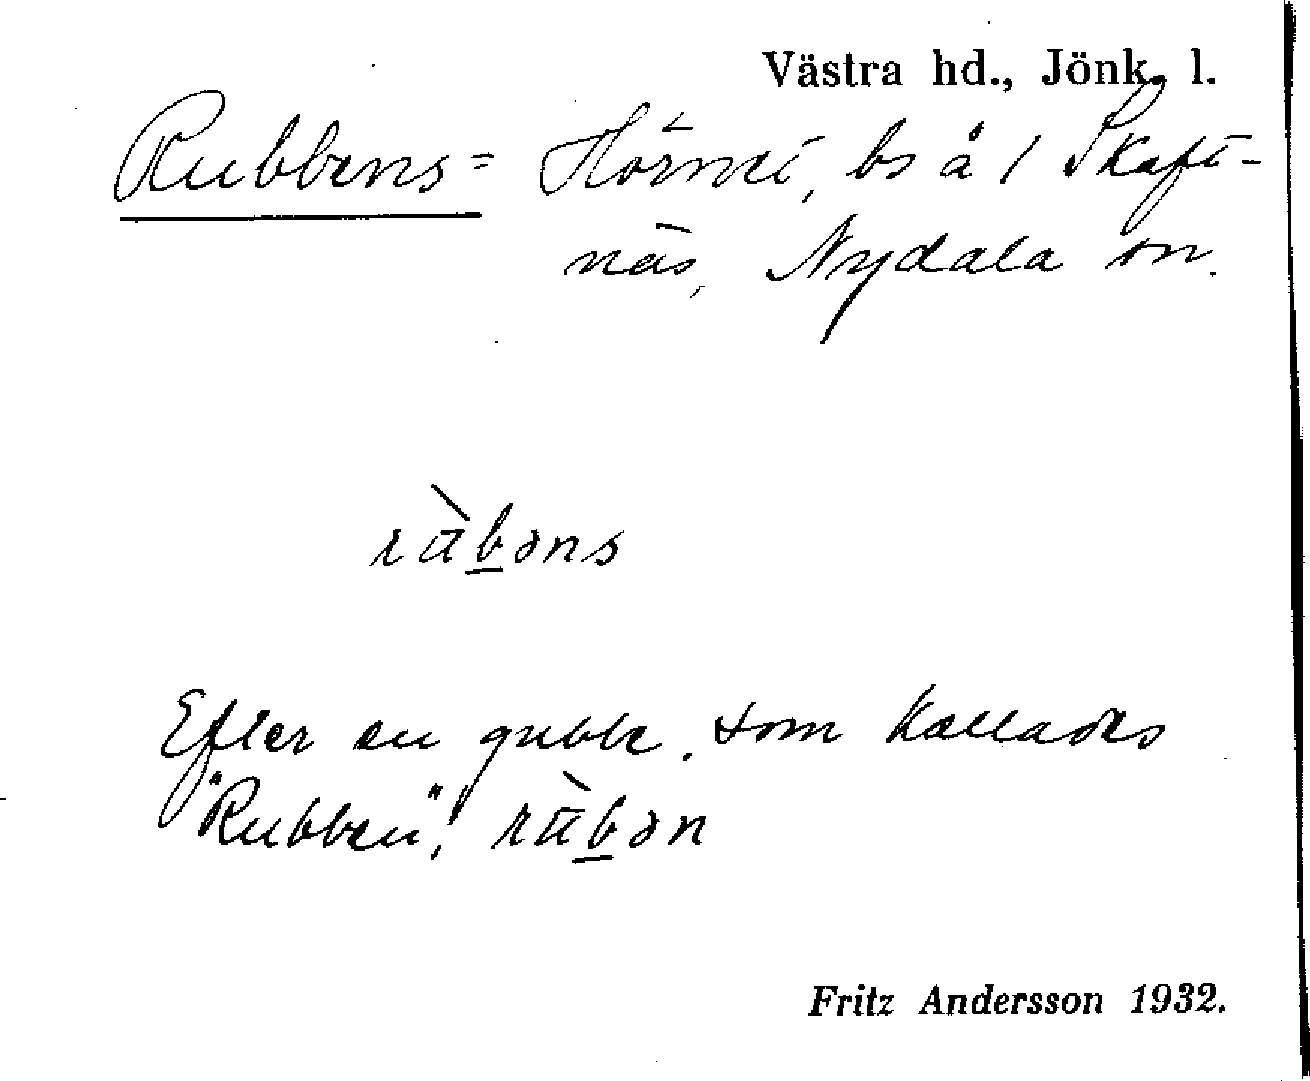 Västra hd., Jönk. l.
Rubbens = Hörnet, bs å 1 Skaft-
näs, Nydala sn.
rùb̲əns
Efter en gubbe, som kallades
"Rubben", rùb̲ən
Fritz Andersson 1932.